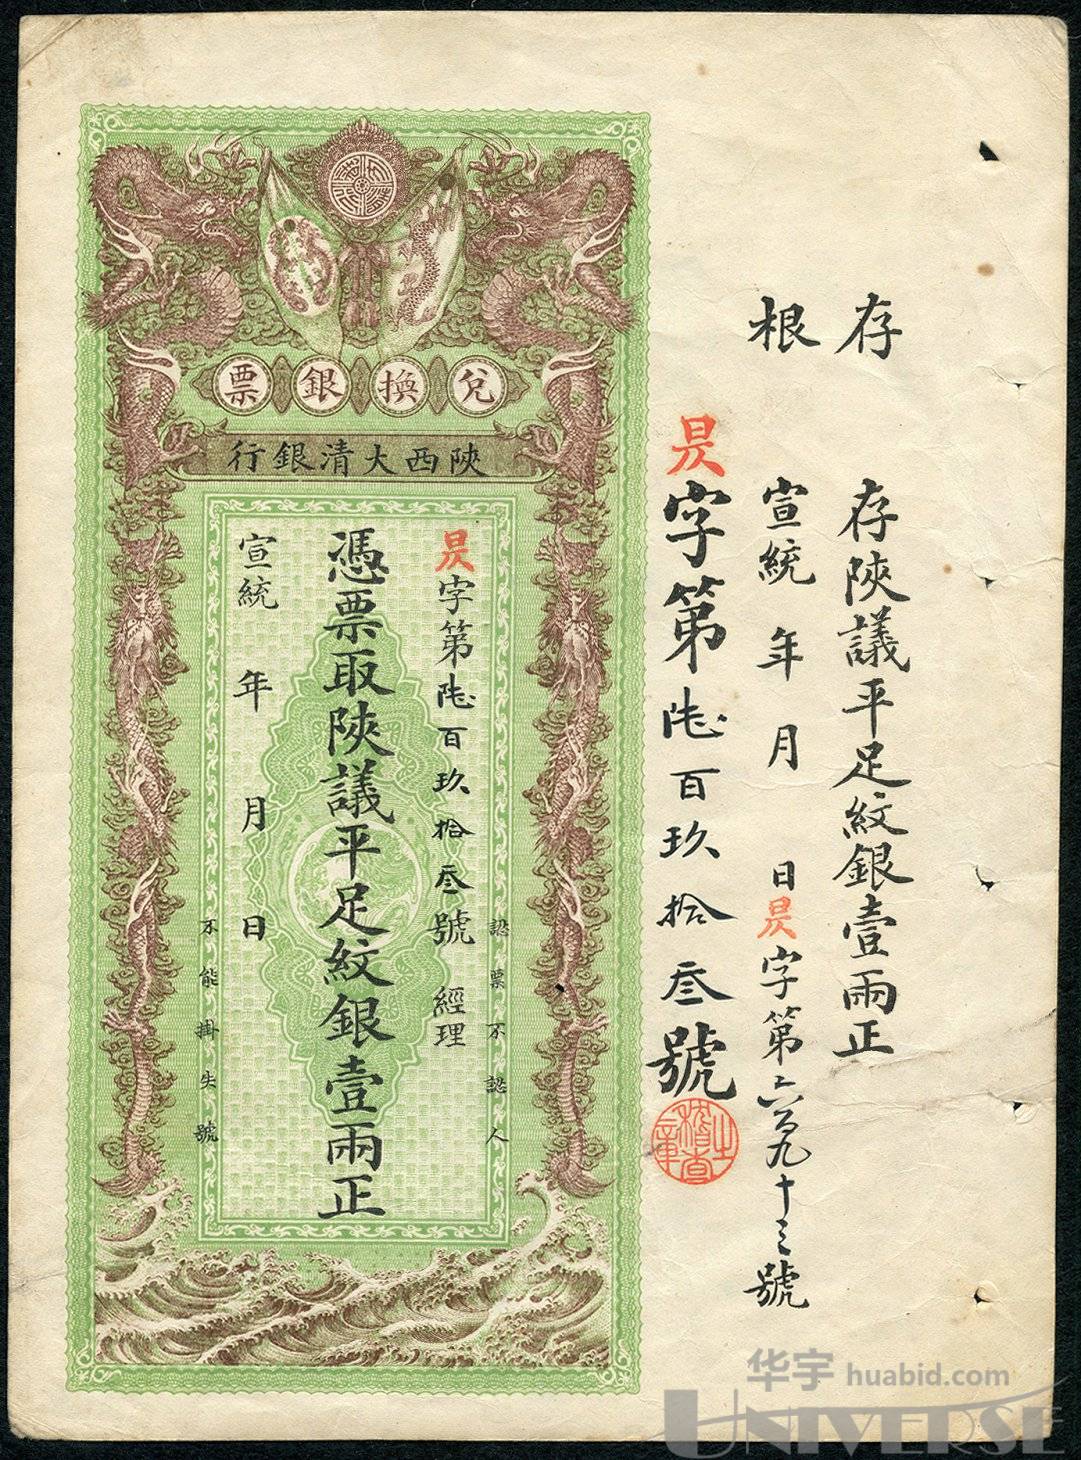 存根
存陝議平足紋銀壹兩正
宣統 年 月 日昃字第六百九十三號
昃字第陸百玖拾叁號
稽查之章
兌換銀票
陝西大清銀行
認票不認人
昃字第陸百玖拾叁號 經理
憑票取陝議平足紋銀壹兩正
宣統 年 月 日
不能掛失號
华宇 huabid.com
UNIVERSE